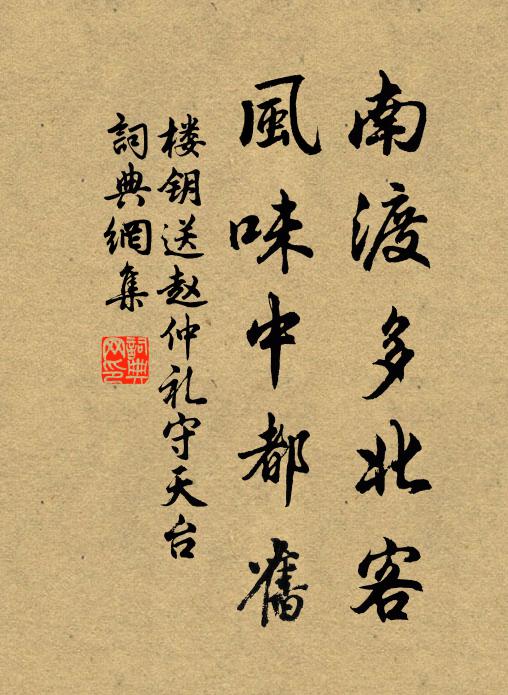 南渡多北客
風味中都舊
楼钥送赵仲礼守天台
詞典網集
詞典
网印